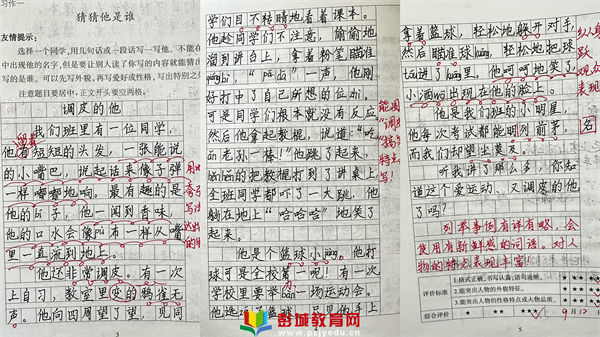 习作一
猜猜他是谁
友情提示:
选择一个同学,用几句话或一段话写一写他。不能在
中出现他的名字,但是要让别人读了你写的内容就能猜出
写的是谁。可以先写外貌,再写爱好或性格,写出特别之
注意题目要居中,正文开头要空两格。
调皮的他
我们班里有一位同学,
他有短短的头发,一张能说
的小嘴巴,说起话来像子弹
一样嘟嘟地响。最有趣的是
他的子,他一闻到香味,
他的口水会像pù有一样从嘴
里一直流到地上。
他还非常调皮。有一次
上自习,教室里变的鸦雀无
声。他向四周望了望,见同
3
学们目不转睛地看着课本。
他趁同学们不注意,偷偷地
溜到讲台上,拿着粉笔瞄准
“pā”一声,他刚
好打中了自己所想的位
可是同学们根本就没有反应。
然后他拿起教棍,说道:“吃
俺老孙一棒!”他跳了起来,
的教棍打到了讲桌上,
全班同学都吓了一大跳,他
躺在地上“哈哈哈”地笑了
起来。
他是个篮球小jiàng。他打
球可是全校第一呢!有一次
学校里要举bàn一场运动会。
他选了篮球,只见他手上
能
“调
特点
写!
拿着篮球,轻松地躲开对手,
然后瞄准球kuāng,轻松地把球
tóu进了球里。他呵呵地笑了,
小酒wō出现在他的脸上。
他的学习也很好,是个学霸。
他每次考试都能名列前茅,
而我们却望尘莫及。
听我讲了那么多,你知
道这个爱运动、又调皮的他
了吗?
列举事例有详有略,会
使用有新鲜感的词语。对人
物的特点表现丰富!
评价标准
1.格式正确,书写认真,语句通顺。
2.能突出人物的外貌特征。
3.能突出人物的性格特点或人物品质。
综合评价
9月12
5
彭城教育网
www.pcjyedu.cn